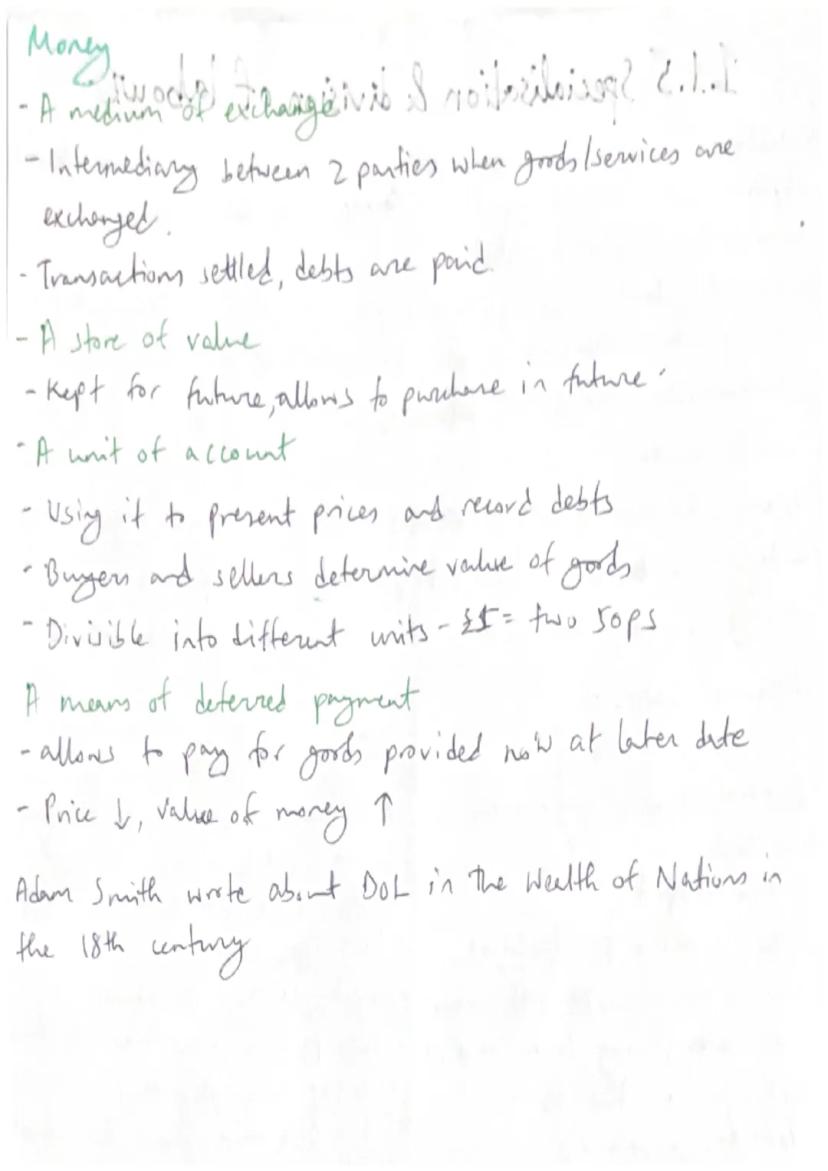 Money
1.1.5 Specialisation & division of labour
- A medium of exchange
- Intermediary between 2 parties when goods/services are
exchanged.
- Transactions settled, debts are paid.
- A store of value
- Kept for future, allows to purchase in future.
- A unit of account
- Using it to present prices and record debts
- Buyers and sellers determine value of goods
- Divisible into different units - £1 = two 50ps
A means of deferred payment
- allows to pay for goods provided now at later date
- Price ↓, value of money ↑
Adam Smith wrote about DoL in the Wealth of Nations in
the 18th century